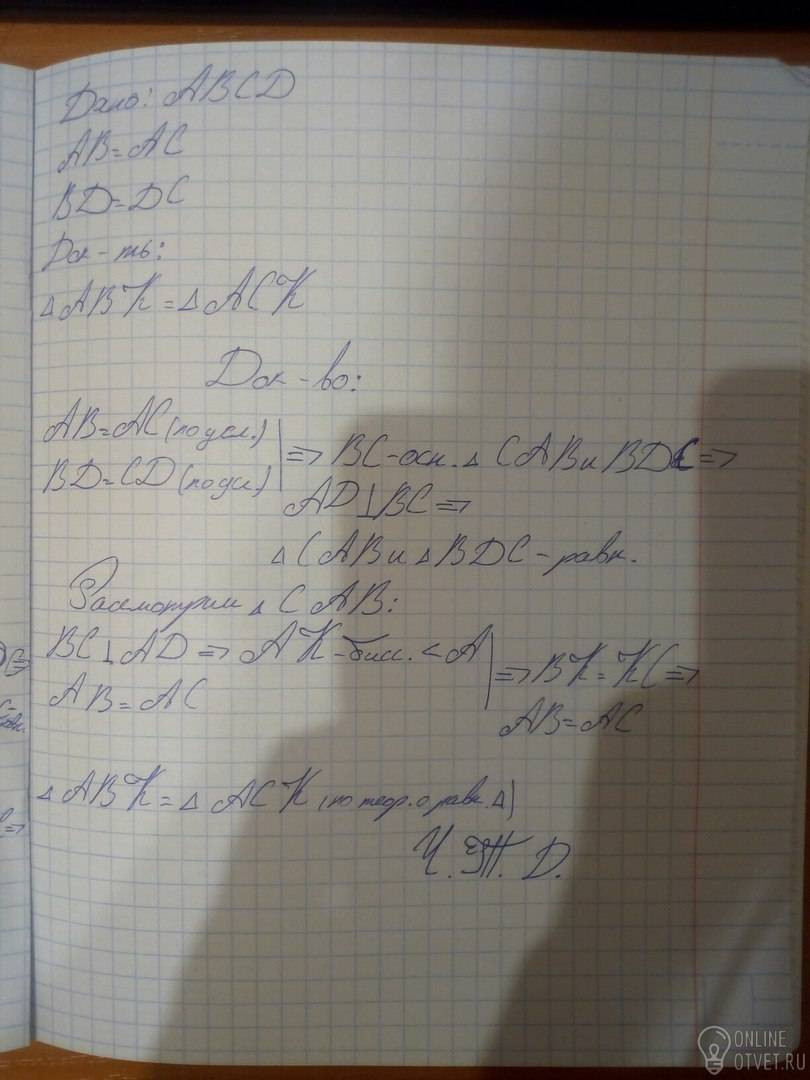 Дано: ABCD
AB=AC
BD=DC
Док-ть:
△ABK=△ACK
Док-во:
AB=AC (по усл.)
BD=CD (по усл) => BC-осн. △ CAB и BDC =>
AD⊥BC =>
△ CAB и △ BDC - равн.
Рассмотрим △ CAB:
BC⊥AD => AK-бисс. <A
AB=AC => BK=KC =>
AB=AC
△ ABK = △ ACK (по теор. о равн. △)
Ч.Т.Д.
ONLINE
OTVET.RU